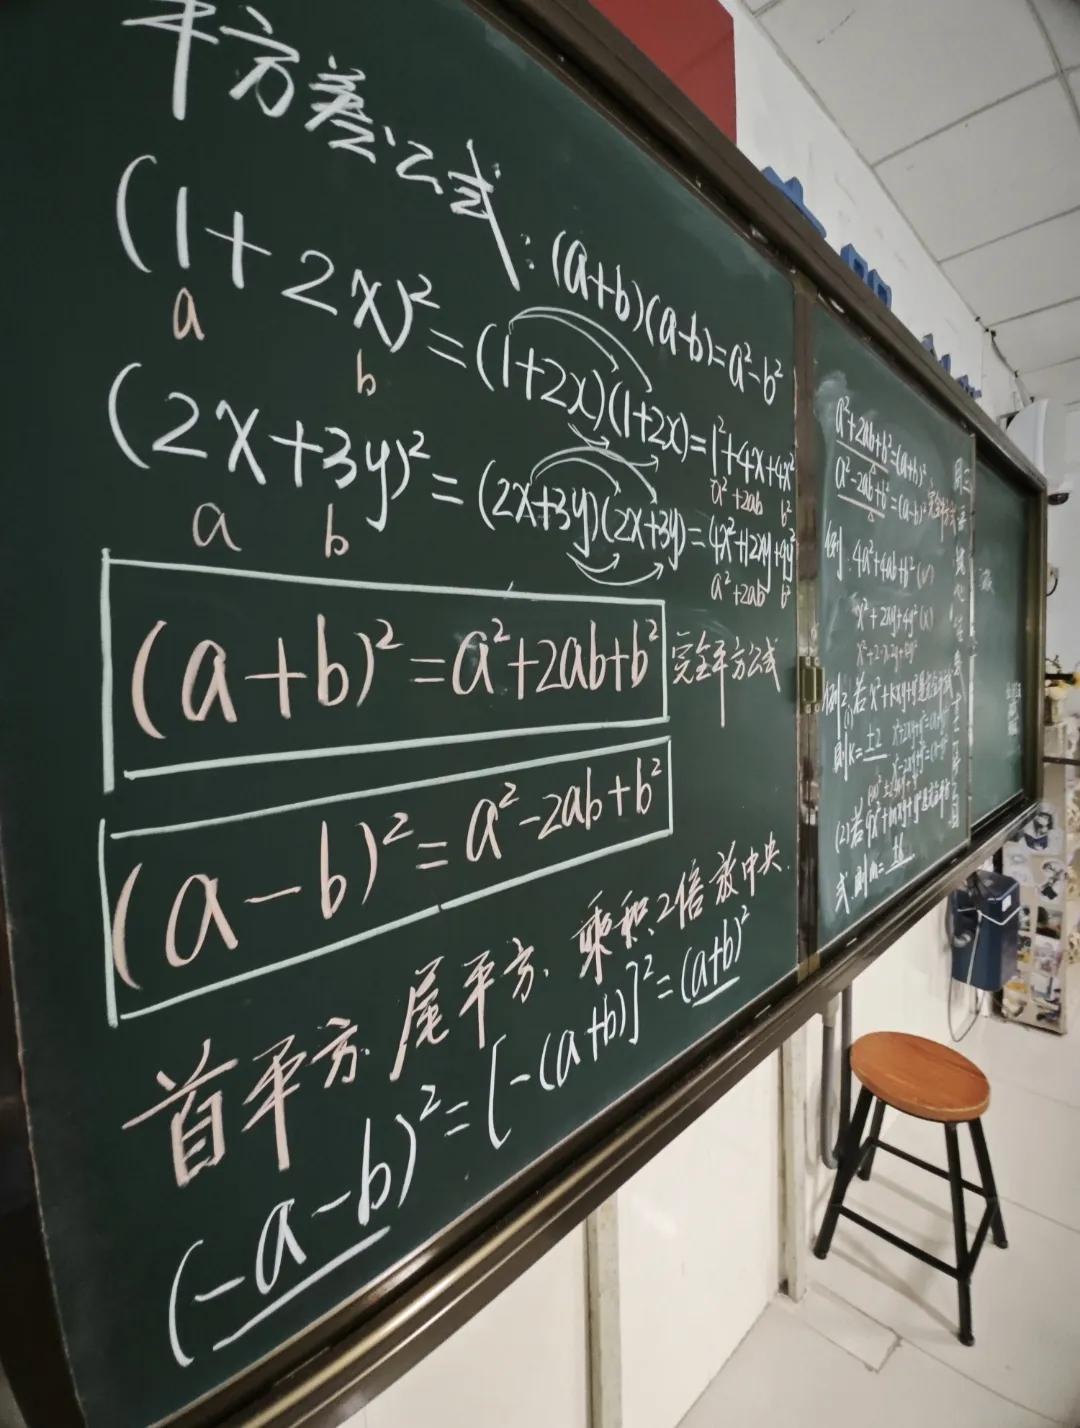 平方差公式:(a+b)(a-b)=a²-b²
(1+2x)²=(1+2x)(1+2x)=1²+4x+4x²
a b a²+2ab b²
(2x+3y)²=(2x+3y)(2x+3y)=4x²+12xy+9y²
a b a²+2ab b²
(a+b)²=a²+2ab+b² 完全平方公式
(a-b)²=a²-2ab+b²
首平方、尾平方、乘积2倍放中央.
(-a-b)²=[-(a+b)]²=(a+b)²
a²+2ab+b²=(a+b)²
a²-2ab+b²=(a-b)² 完全平方式
例1:4a²+4ab+b² (√)
x²+2xy+4y² (×)
例2:(1)若x²+kxy+y²是完全平方式
则k=±2
(2)若9x²+mxy+y²是完全平方
式,则m=±6